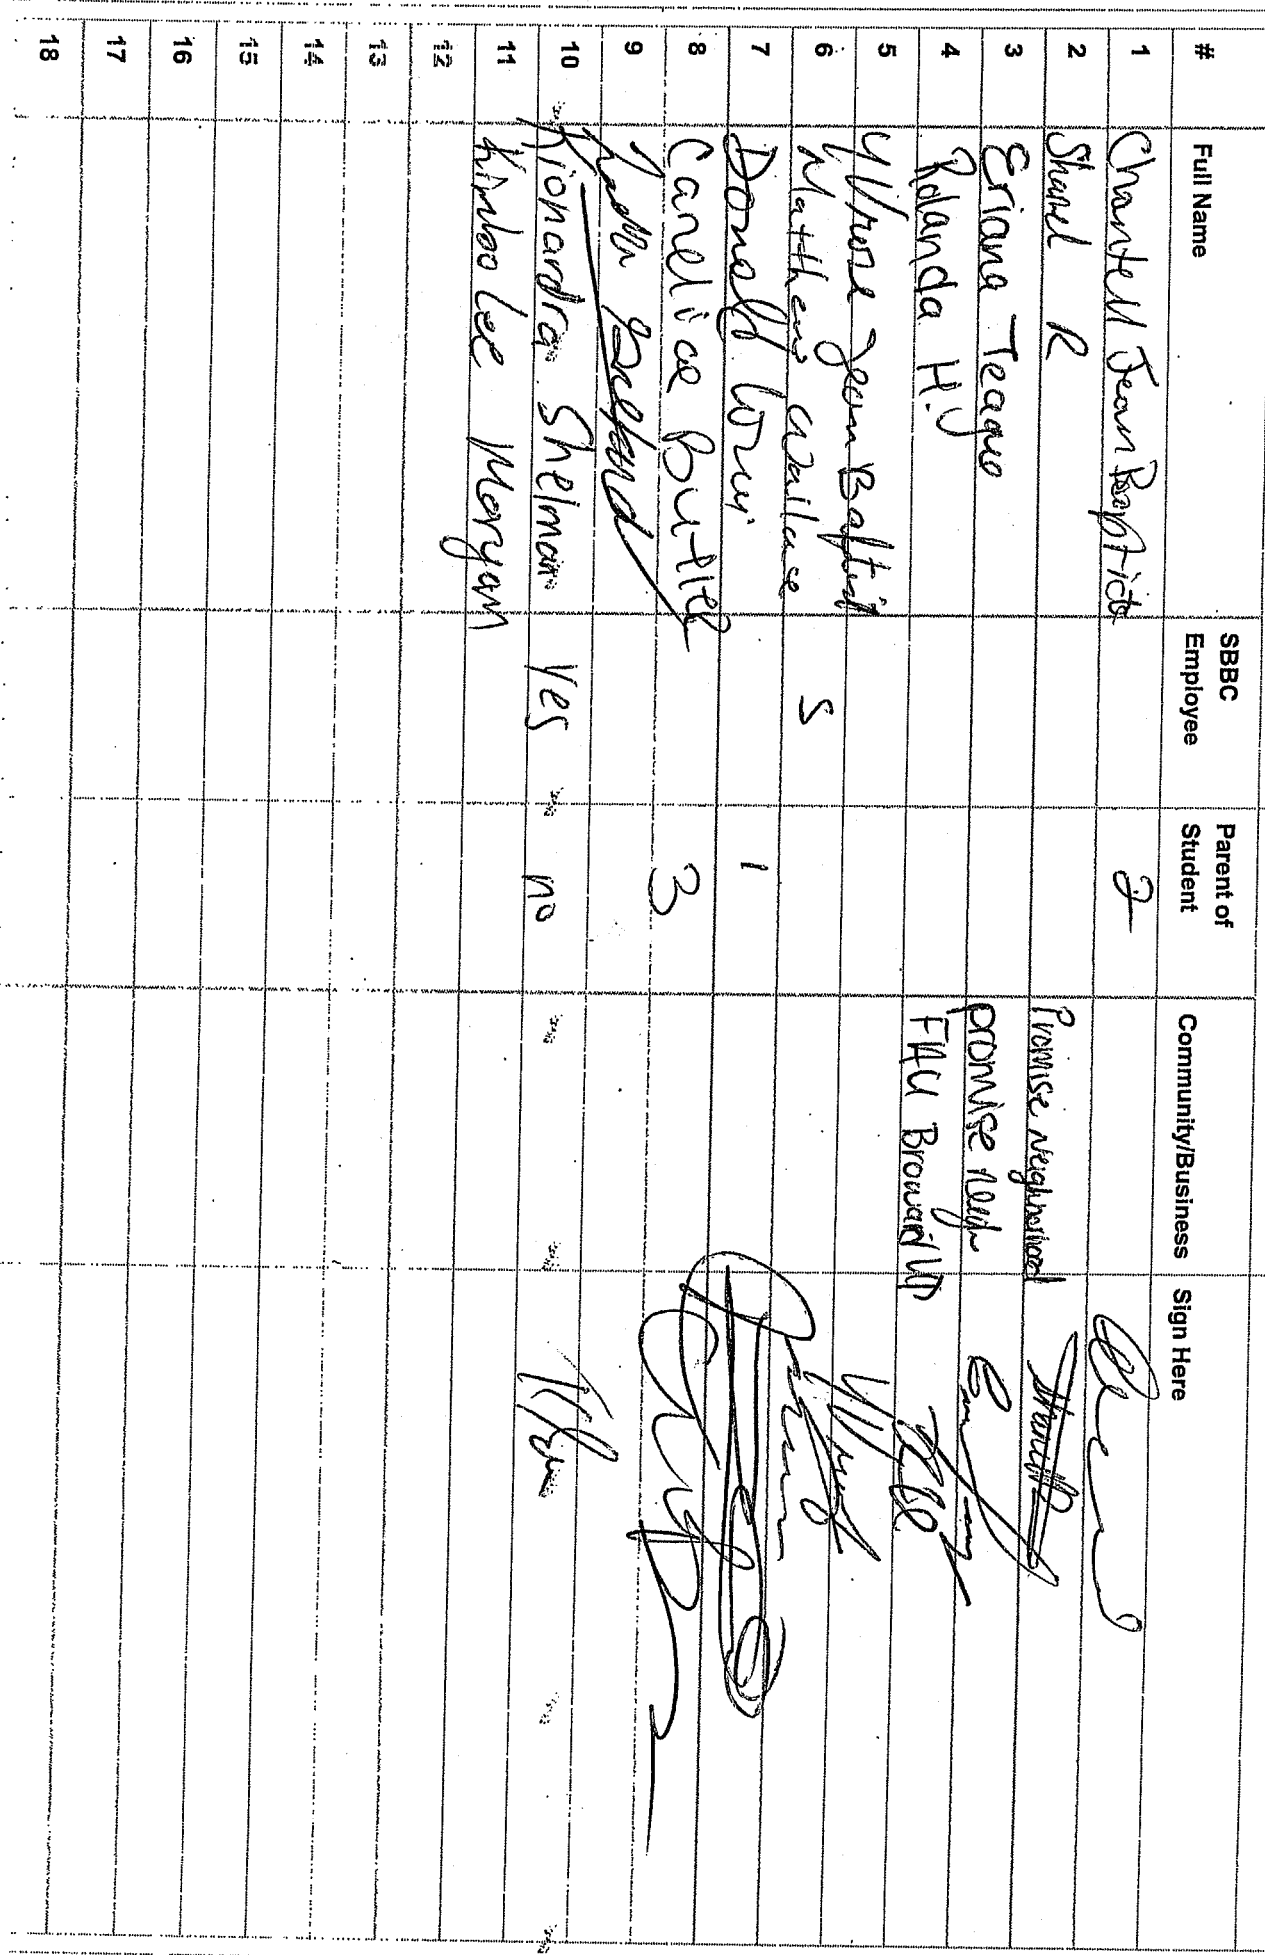 # Full Name SBBC Employee Parent of Student Community/Business Sign Here
1 Chantell Jean Baptiste 2
2 Shanel R Promise Neighborhood
3 Eriana Teague promise neigh
4 Rolanda H.J FAU Broward UP
5 Yvrose Jean Baptist
6 Matthew Wallace S
7 Donald 1
8 Canelice Butler 3
9
10 Kionardra Shelman yes no
11 Kimbo Lee Moryam
12
13
14
15
16
17
18